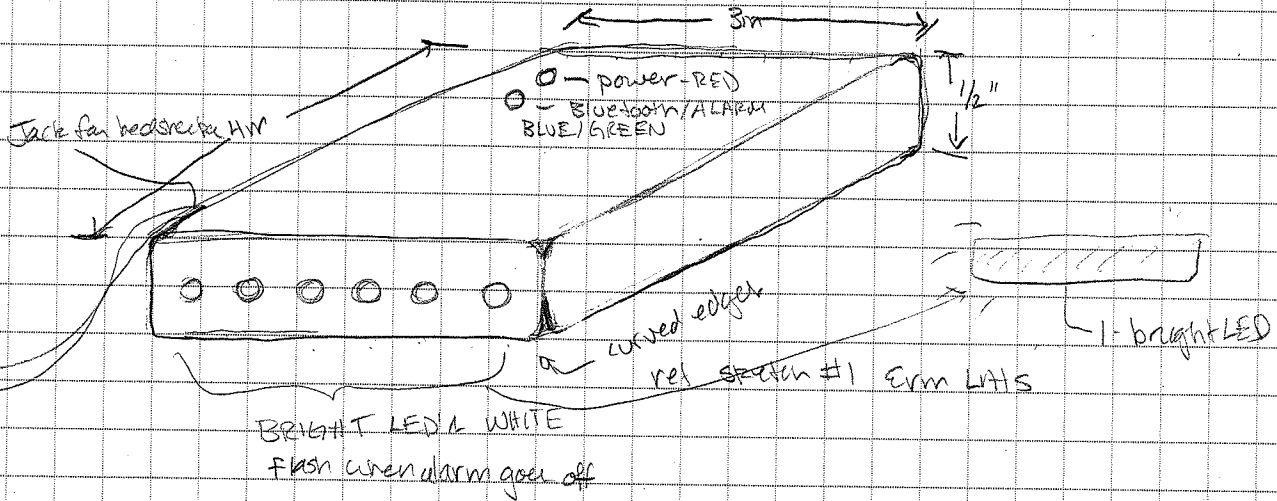 3in
power-RED
Bluetooth/ALARM
BLUE/GREEN
1/2"
Jack for bedshaker HW
curved edges
1-bright LED
ref sketch #1
BRIGHT LED's WHITE
flash when alarm goes off